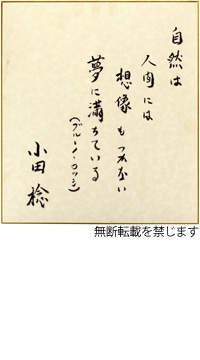 自然は
人間には
想像もつかない
夢に満ちている
(ブルーノ・ロッシ)
小田稔
無断転載を禁じます